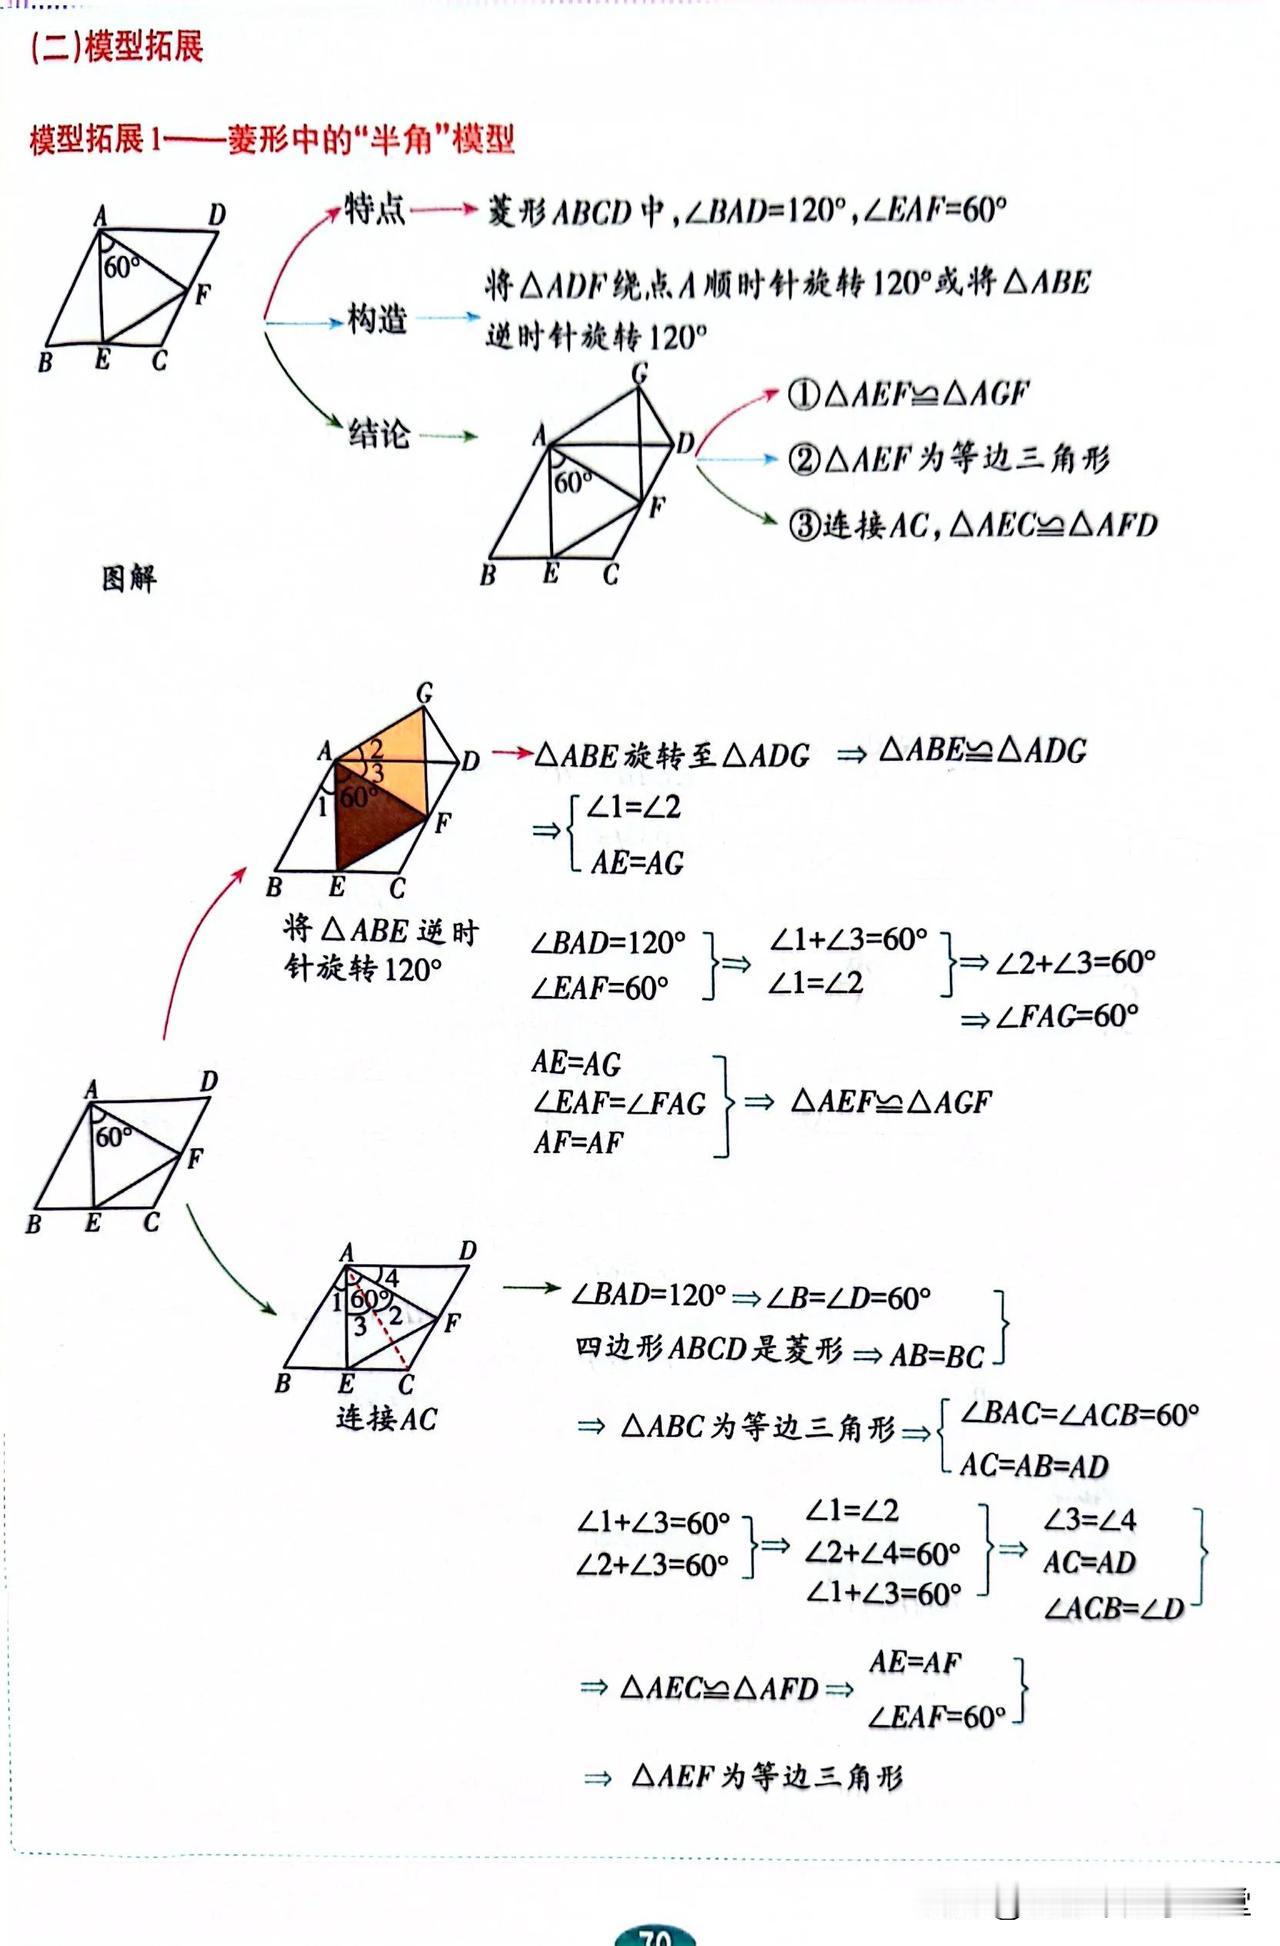 (二)模型拓展
模型拓展1——菱形中的“半角”模型
A D
60°
F
B E C
特点
菱形ABCD中,∠BAD=120°,∠EAF=60°
构造
将△ADF绕点A顺时针旋转120°或将△ABE
逆时针旋转120°
结论
G
A D
60°
F
B E C
①△AEF≌△AGF
②△AEF为等边三角形
③连接AC,△AEC≌△AFD
图解
G
A 2 D
3
1 60°
F
B E C
将△ABE逆时
针旋转120°
△ABE旋转至△ADG ⇒ △ABE≌△ADG
⇒ ∠1=∠2
AE=AG
∠BAD=120°
∠EAF=60°
⇒ ∠1+∠3=60°
∠1=∠2
⇒ ∠2+∠3=60°
⇒ ∠FAG=60°
AE=AG
∠EAF=∠FAG
AF=AF
⇒ △AEF≌△AGF
A D
60°
F
B E C
A D
4
1 60° 2
3 F
B E C
连接AC
∠BAD=120° ⇒ ∠B=∠D=60°
四边形ABCD是菱形 ⇒ AB=BC
⇒ △ABC为等边三角形 ⇒ ∠BAC=∠ACB=60°
AC=AB=AD
∠1+∠3=60°
∠2+∠3=60°
⇒ ∠1=∠2
∠2+∠4=60°
∠1+∠3=60°
⇒ ∠3=∠4
AC=AD
∠ACB=∠D
⇒ △AEC≌△AFD ⇒ AE=AF
∠EAF=60°
⇒ △AEF为等边三角形
70